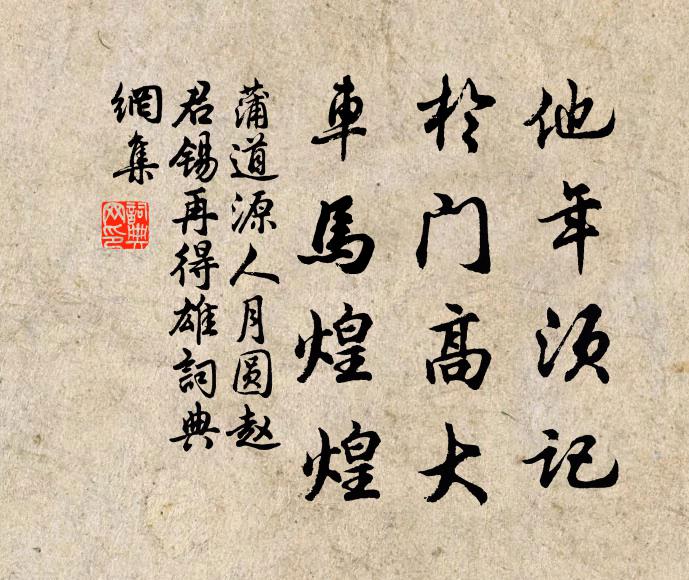 他年须记
於门高大
車馬煌煌
蒲道源人月圆赵
君锡再得雄詞典
網集
詞典
网印